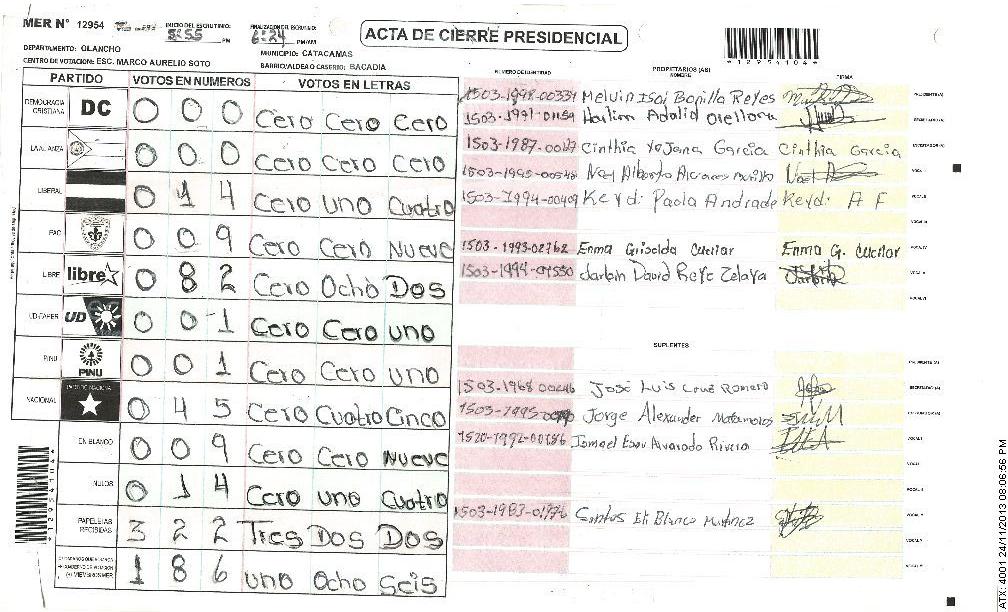 MER N° 12954
INICIO DEL ESCRUTINIO:
5:55 PM
FINALIZACION DEL ESCRUTINIO:
6:24 PM/AM
ACTA DE CIERRE PRESIDENCIAL
*12954104*
DEPARTAMENTO: OLANCHO
MUNICIPIO: CATACAMAS
CENTRO DE VOTACION: ESC. MARCO AURELIO SOTO
BARRIO/ALDEA O CASERIO: BACADIA
PARTIDO VOTOS EN NUMEROS VOTOS EN LETRAS
DEMOCRACIA CRISTIANA DC 0 0 0 Cero Cero Cero
LA ALIANZA 0 0 0 Cero Cero Cero
LIBERAL 0 1 4 Cero uno Cuatro
PAC 0 0 9 Cero Cero Nueve
LIBRE libre 0 8 2 Cero Ocho Dos
UD-FAPER UD 0 0 1 Cero Cero uno
PINU PINU 0 0 1 Cero Cero uno
NACIONAL PARTIDO NACIONAL 0 4 5 Cero Cuatro Cinco
EN BLANCO 0 0 9 Cero Cero Nueve
NULOS 0 1 4 Cero uno Cuatro
PAPELETAS RECIBIDAS 3 2 2 Tres Dos Dos
(+) MIEMBROS MER 1 8 6 uno Ocho Seis
NUMERO DE IDENTIDAD PROPIETARIOS (AS) NOMBRE FIRMA
1503-1998-00339 Melvin Isai Bonilla Reyes PRESIDENTE (A)
1503-1991-01159 Harlin Adalid Orellana SECRETARIO (A)
1503-1987- Cinthia Yojana Garcia Cinthia Garcia ESCRUTADOR (A)
1503-1995-00548 Noel Alberto VOCAL I
1503-1994-00409 Keydi Paola Andrade Keydi A F VOCAL II
VOCAL III
1503-1993-02762 Enma Griselda Cuellar Enma G. Cuellar VOCAL IV
Jarbin David Reye Zelaya VOCAL V
VOCAL VI
SUPLENTES
PRESIDENTE (A)
1503-1968-00246 José Luis Cruz Romero SECRETARIO (A)
Jorge Alexander Matamoros ESCRUTADOR (A)
1520-1992-00156 Ismael Esau Alvarado Rivera VOCAL I
VOCAL II
VOCAL III
1503-1983-01776 Santos Eli Blanco Martinez VOCAL IV
VOCAL V
VOCAL VI
*12954104*
ATX: 4001 24/11/2013 08:06:56 PM